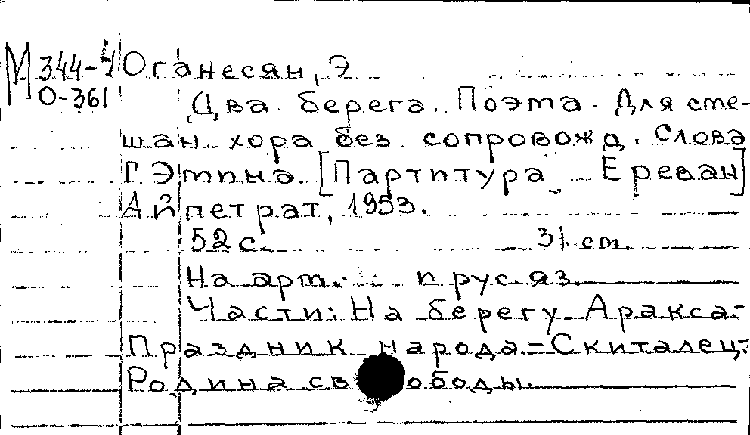 М 344-4 Оганесян, Э.
О-361 Два берега. Поэма. Для сме-
шан. хора без сопровожд. Слова
Г. Эмина. [Партитура] Ереван]
Айпетрат, 1953.
52 с. 31 cm.
На арм. и рус. яз.
Части: На берегу Аракса.-
Праздник народа.-Скиталец.-
Родина свободы.